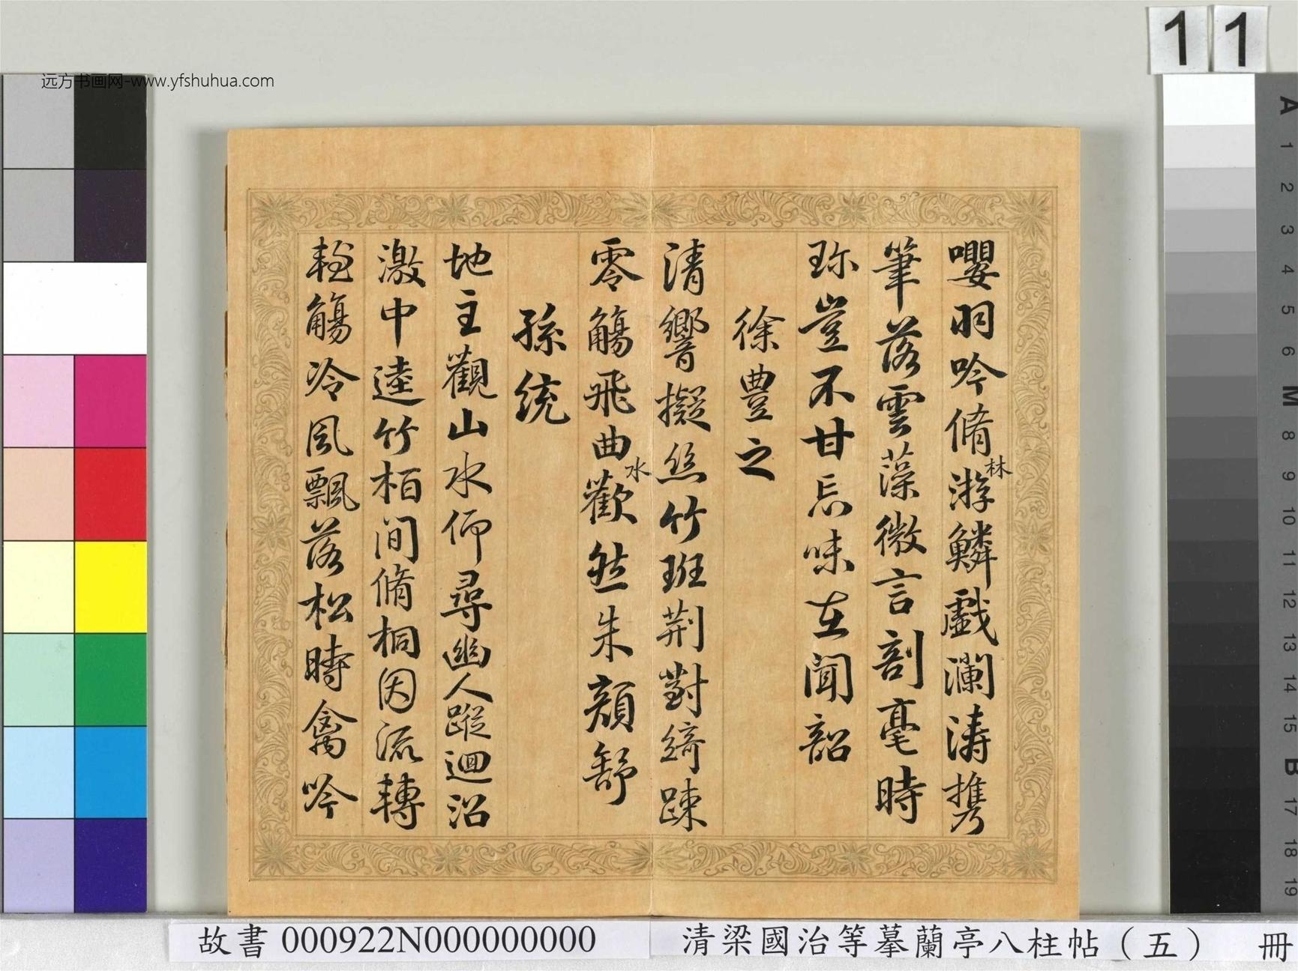 11
远方书画网-www.yfshuhua.com
嚶羽吟脩游鱗戲瀾濤攜
林
筆落雲藻微言剖毫時
珎豈不甘忘味在聞韶
徐豊之
清響擬絲竹班荆對綺疎
零觴飛曲歡然朱顏舒
水
孫統
地主觀山水仰尋幽人蹤迴沼
激中逵竹栢间脩桐因流轉
軽觴冷風飄落松時禽吟
A
1
2
3
4
5
6
M
8
9
10
11
12
13
14
15
B
17
18
19
故書 000922N000000000
清梁國治等摹蘭亭八柱帖（五） 冊